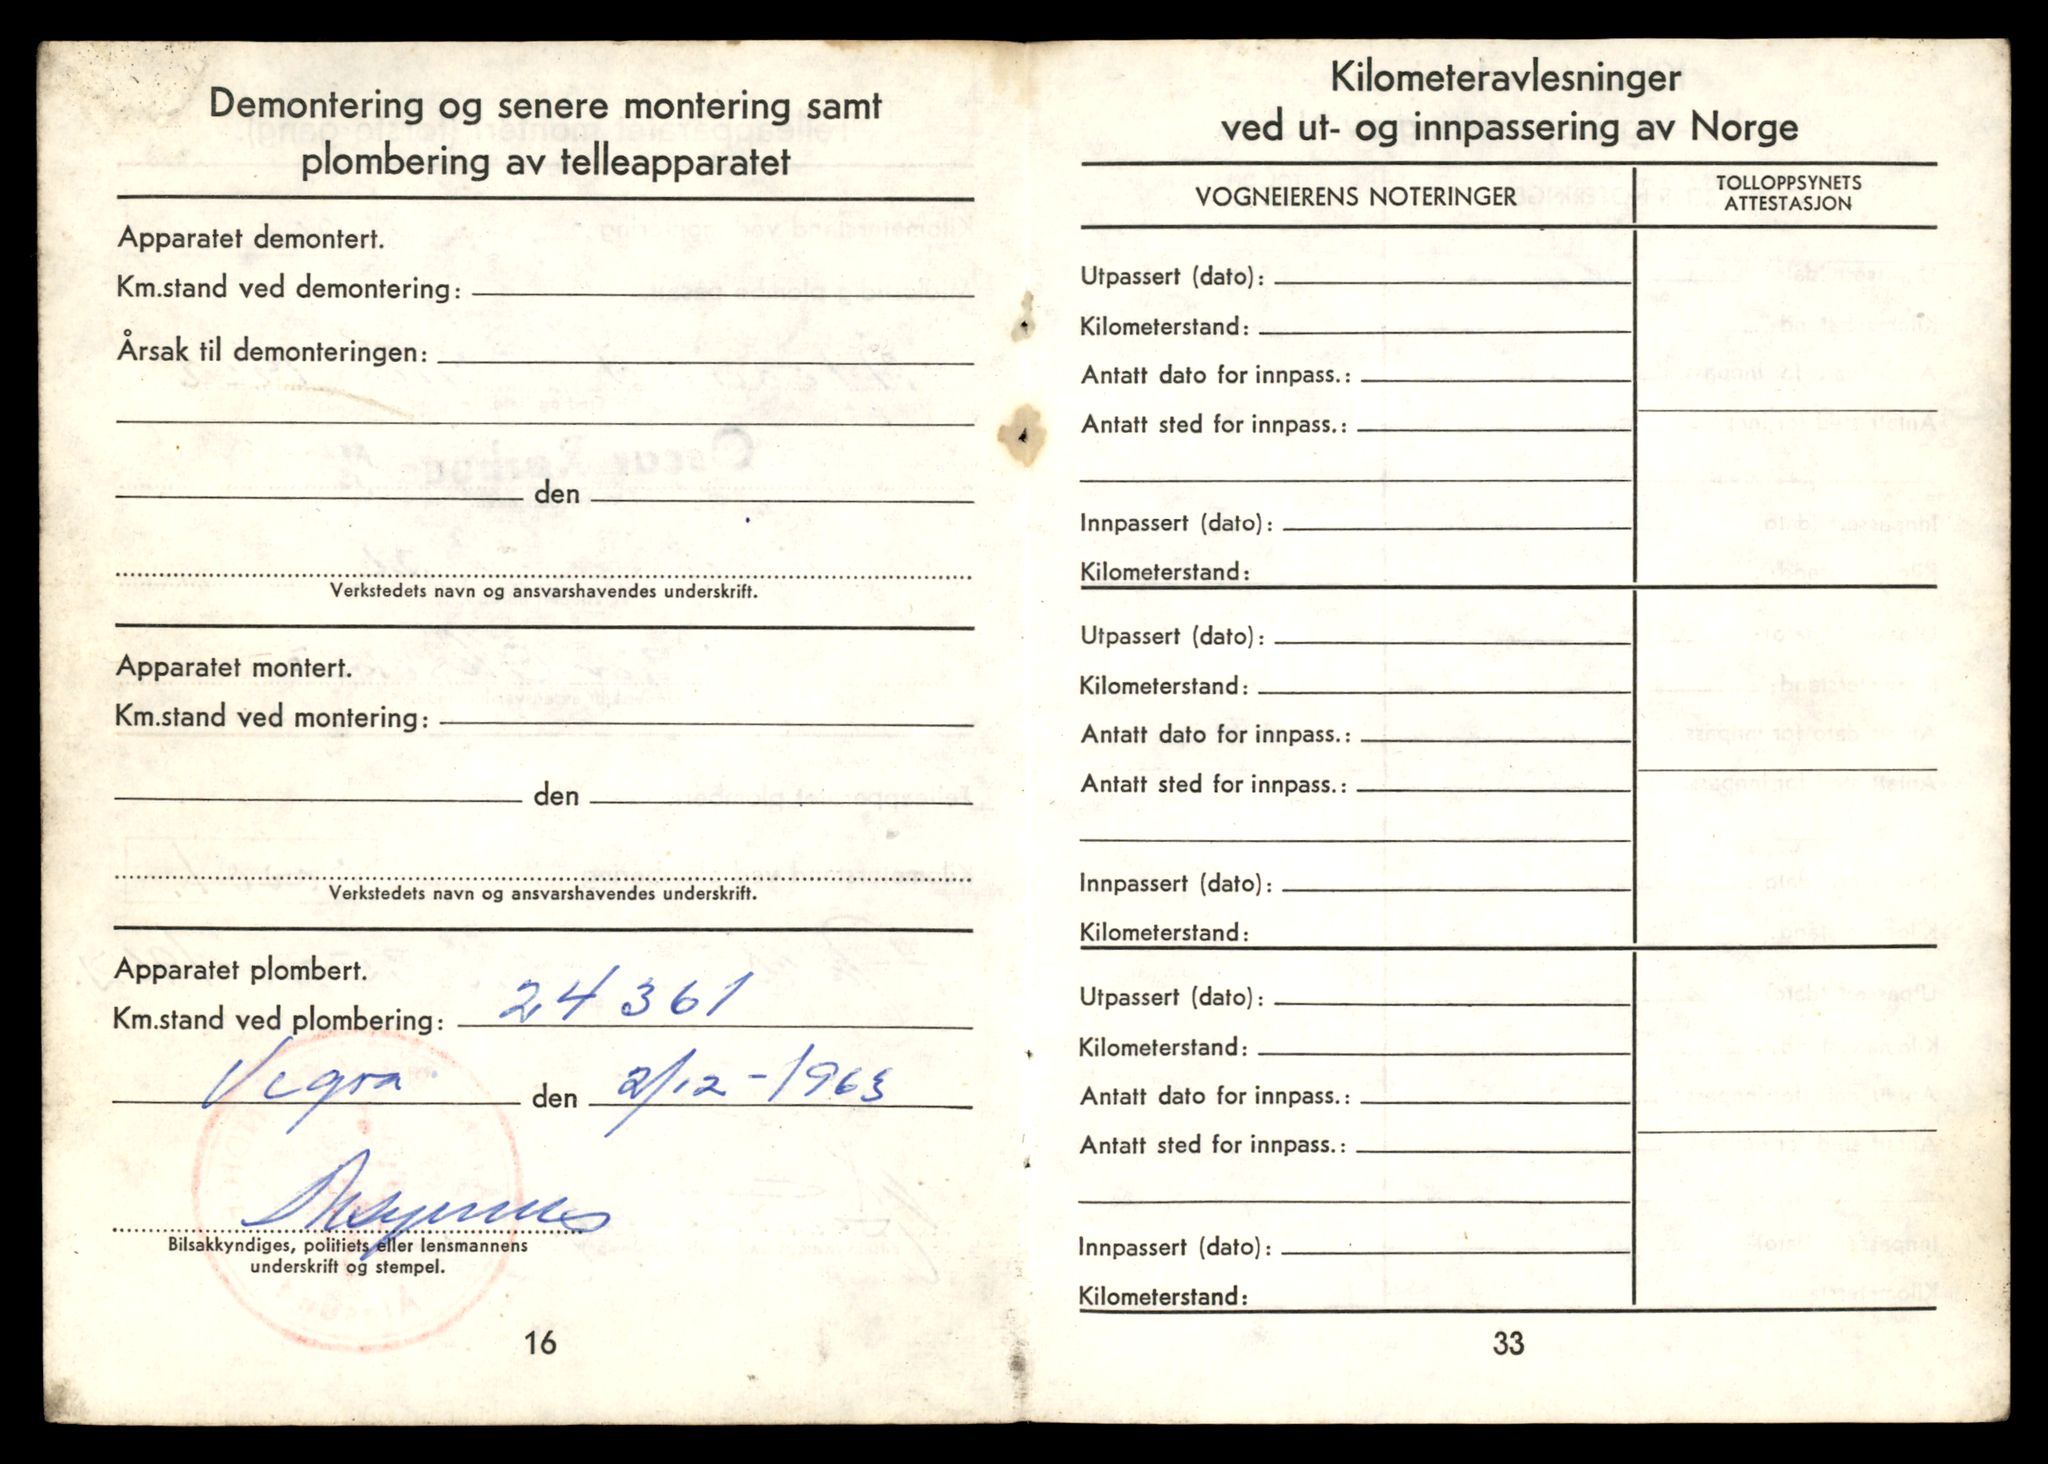 Demontering og senere montering samt
plombering av telleapparatet
Apparatet demontert.
Km.stand ved demontering:
Årsak til demonteringen:
den
Verkstedets navn og ansvarshavendes underskrift.
Apparatet montert.
Km.stand ved montering:
den
Verkstedets navn og ansvarshavendes underskrift.
Apparatet plombert.
Km.stand ved plombering: 24361
Vigra den 2/12-1963
Bilsakkyndiges, politiets eller lensmannens
underskrift og stempel.
16
Kilometeravlesninger
ved ut- og innpassering av Norge
VOGNEIERENS NOTERINGER
TOLLOPPSYNETS
ATTESTASJON
Utpassert (dato):
Kilometerstand:
Antatt dato for innpass.:
Antatt sted for innpass.:
Innpassert (dato):
Kilometerstand:
Utpassert (dato):
Kilometerstand:
Antatt dato for innpass.:
Antatt sted for innpass.:
Innpassert (dato):
Kilometerstand:
Utpassert (dato):
Kilometerstand:
Antatt dato for innpass.:
Antatt sted for innpass.:
Innpassert (dato):
Kilometerstand:
33